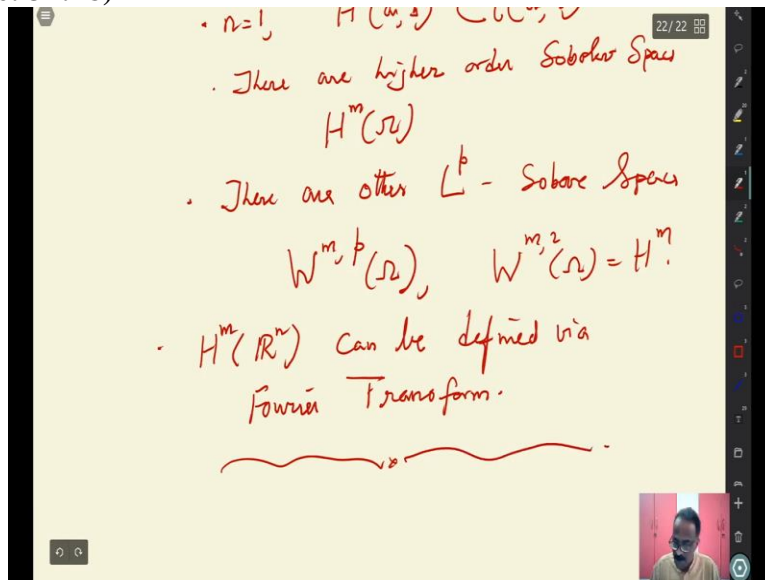 • n=1,
22/22
. There are higher order Sobolev Spaces
H^m(Ω)
. There are other L^p - Sobove Spaces
W^{m,p}(Ω), W^{m,2}(Ω) = H^m.
. H^m(ℝ^n) can be defined via
Fourier Transform.